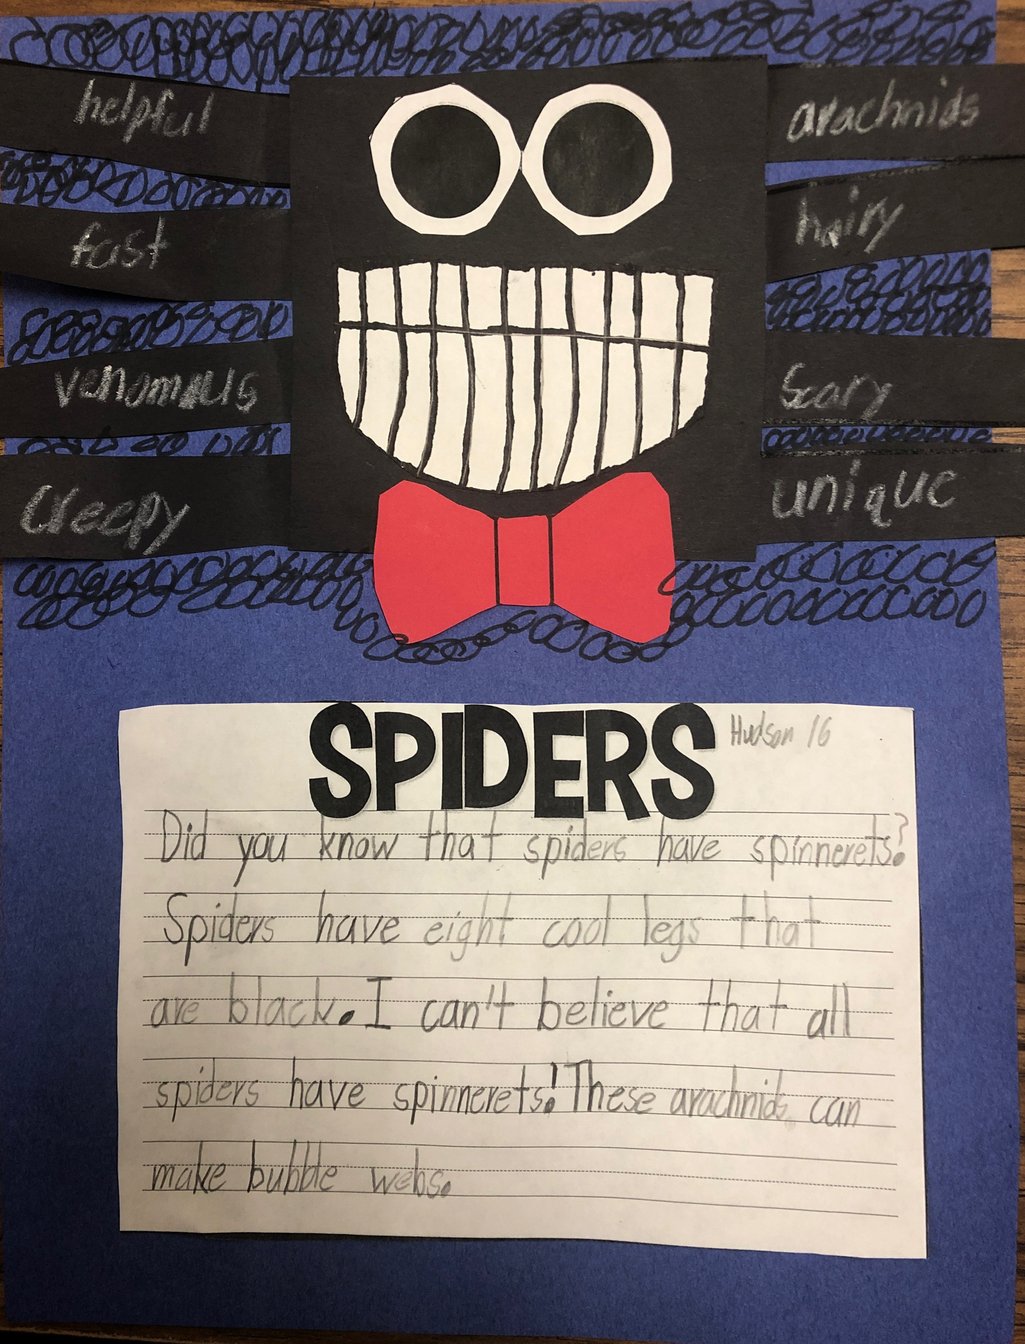 helpful
arachnids
fast
hairy
venomous
scary
creepy
unique
SPIDERS
Hudson 16
Did you know that spiders have spinnerets?
Spiders have eight cool legs that
are black. I can't believe that all
spiders have spinnerets! These arachnids can
make bubble webs.